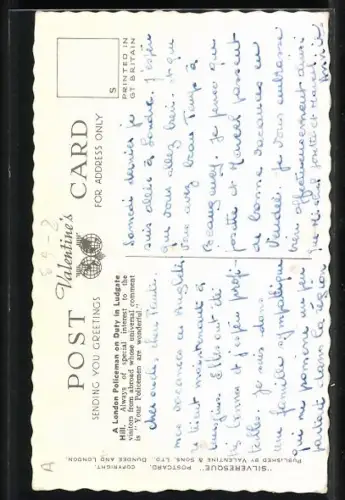 POST CARD
Valentine's
SENDING YOU GREETINGS
FOR ADDRESS ONLY
S
PRINTED IN
GT BRITAIN
A London Policeman on Duty in Ludgate
Hill. Always of special interest to the
visitors from abroad whose universal comment
is "Your Policemen are wonderful."
cher oncle, chère
mes vacances en
se tirent maintenant à
Elles ont été
bonnes et j'espère
Je suis dans
une famille sympathique
me promène un peu
partout dans la région
Samedi dernier je
suis allée à Londres. J'espère
que vous allez bien et que
vous avez beau temps à
Je pense que
et Marcel passent
de bonnes vacances en
Vendée. Je vous embrasse
bien affectueusement ainsi
que
"SILVERESQUE" POSTCARD. COPYRIGHT.
PUBLISHED BY VALENTINE & SONS, LTD. DUNDEE AND LONDON.